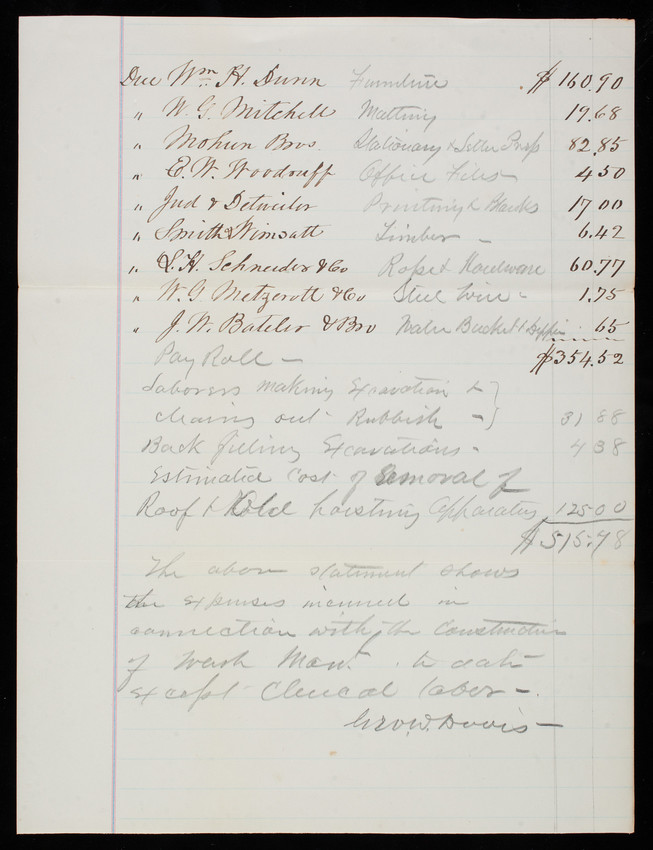 Due Wm. H. Dunn Furniture $160.90
" W. G. Mitchell Matting 19.68
" Mohun Bros. Stationary & Letter Press 82.85
" E. W. Woodruff Office Files 4.50
" Jud & Detwiler Printing & Blanks 17 00
" Smith & Wimsatt Limber - 6.42
" L. H. Schneider & Co Rope & Hardware 60.77
" W. G. Metzerott & Co Steel Wire - 1.75
" J. W. Bateler & Bro Water Bucket & Dipper .65
Pay Roll - $354.52
Laborers making Excavation &
cleaning out Rubbish - 31 88
Back filling Excavations - 4 38
Estimated Cost of removal of
Roof & Old hoisting apparatus 125 00
$515.78
The above statement shows
the expenses incurred in
connection with the Construction
of Wash Mon't. to date
except Clerical labor -.
Geo. W. Davis -